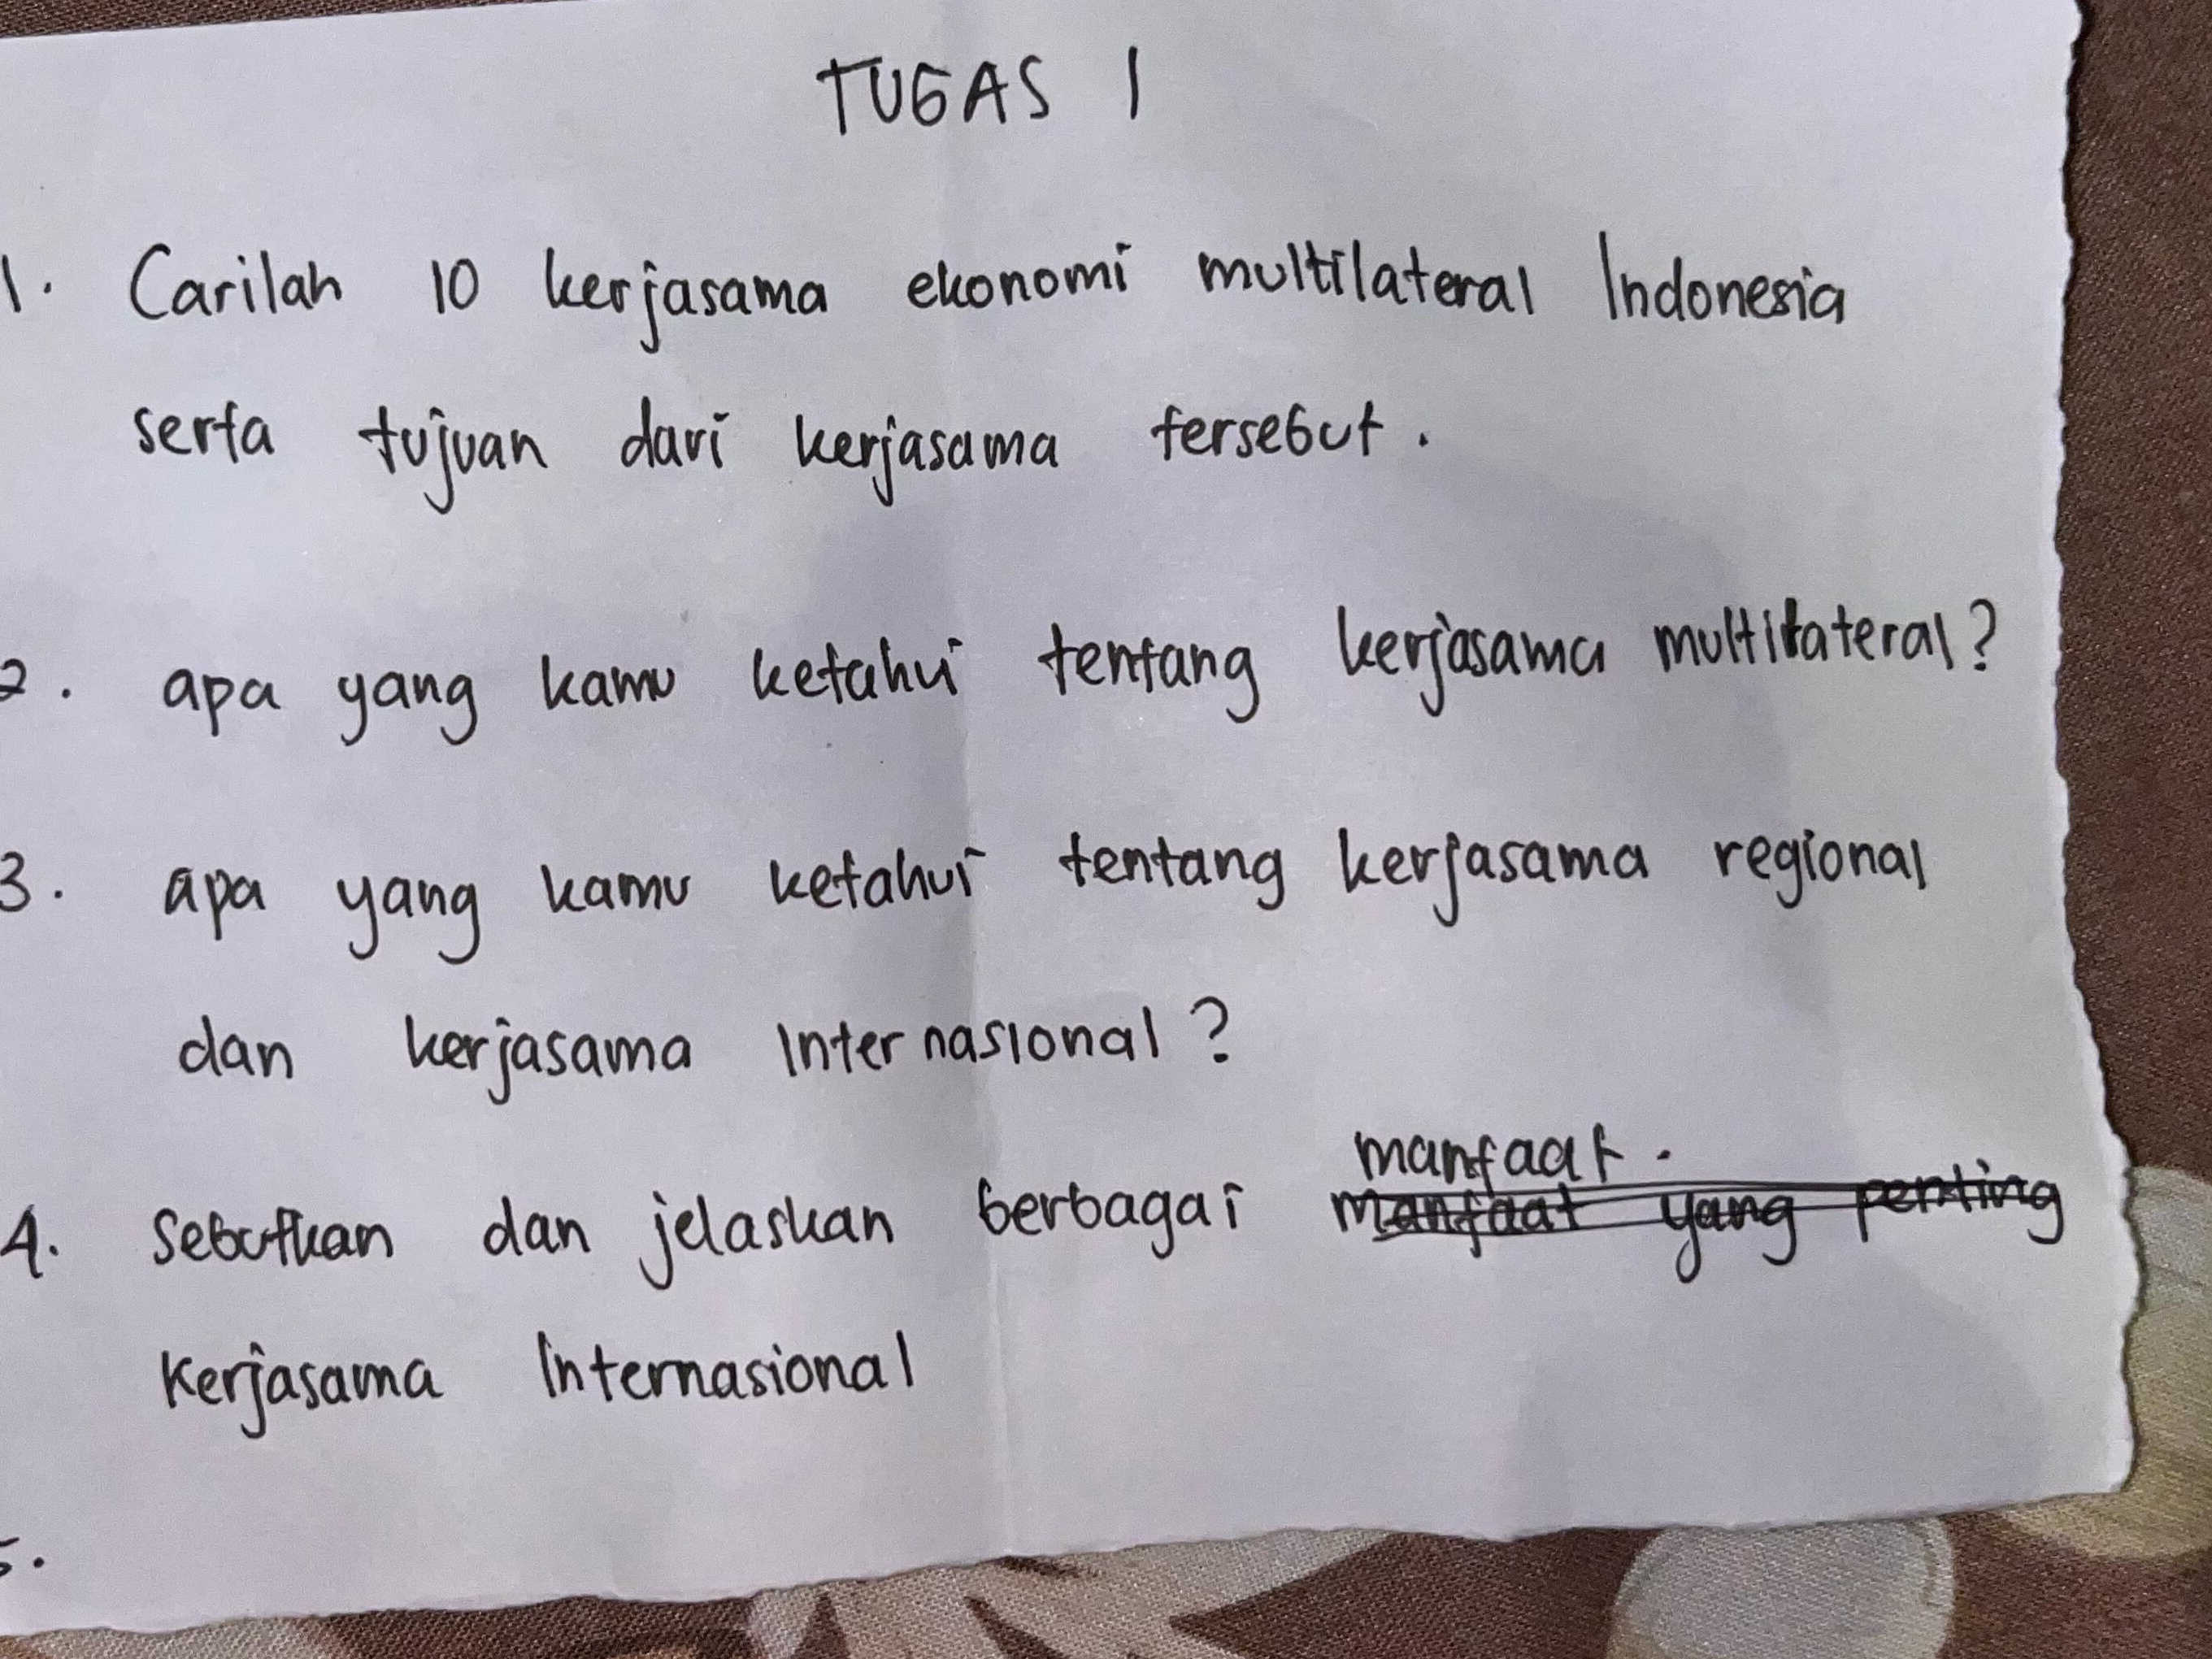 TUGAS 1
1. Carilah 10 kerjasama ekonomi multilateral Indonesia
serta tujuan dari kerjasama tersebut.
2. apa yang kamu ketahui tentang kerjasama multilateral?
3. apa yang kamu ketahui tentang kerjasama regional
dan kerjasama Internasional?
manfaat.
4. Sebutkan dan jelaskan berbagai manfaat yang penting
Kerjasama Internasional
5.